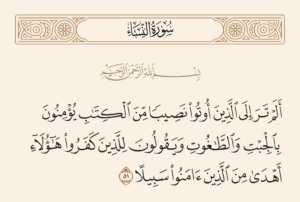 سُورَةُ النِّسَاءِ
بِسْمِ ٱللَّهِ ٱلرَّحْمَٰنِ ٱلرَّحِيمِ
أَلَمْ تَرَ إِلَى ٱلَّذِينَ أُوتُوا۟ نَصِيبًا مِّنَ ٱلْكِتَٰبِ يُؤْمِنُونَ
بِٱلْجِبْتِ وَٱلطَّٰغُوتِ وَيَقُولُونَ لِلَّذِينَ كَفَرُوا۟ هَٰٓؤُلَآءِ
أَهْدَىٰ مِنَ ٱلَّذِينَ ءَامَنُوا۟ سَبِيلًا ٥١